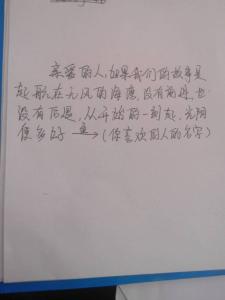 亲爱的人,如果我们的故事是
起航在无风的海港,没有前进,也
没有后退,从开始的一刻起,光阴
很多好 → (你喜欢的人的名字)